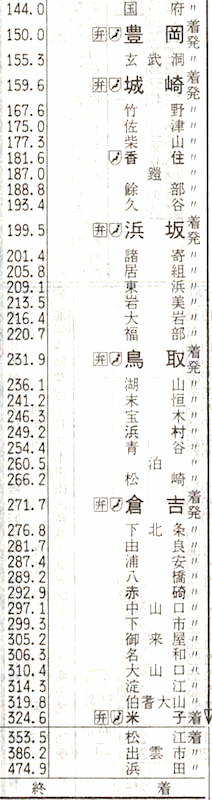 144.0 国府 〃
150.0 弁 豊岡 着発
155.3 玄武洞 〃
159.6 弁 城崎 着発
167.6 竹野 〃
175.0 佐津 〃
177.3 柴山 〃
181.6 香住 〃
187.0 鎧 〃
188.8 餘部 〃
193.4 久谷 〃
199.5 弁 浜坂 着発
201.4 諸寄 〃
205.8 居組 〃
209.1 東浜 〃
213.5 岩美 〃
216.4 大岩 〃
220.7 福部 〃
231.9 弁 鳥取 着発
236.1 湖山 〃
241.2 末恒 〃
246.3 宝木 〃
249.2 浜村 〃
254.4 青谷 〃
260.5 泊 〃
266.2 松崎 〃
271.7 弁 倉吉 着発
276.8 下北条 〃
281.7 由良 〃
287.4 浦安 〃
289.2 八橋 〃
292.9 赤碕 〃
297.1 中山口 〃
299.3 下市 〃
305.2 御来屋 〃
306.3 名和 〃
310.4 大山口 〃
314.3 淀江 〃
319.8 伯耆大山 〃
324.6 弁 米子 着
353.5 松江 着
386.2 出雲市 〃
474.9 浜田 〃
終着